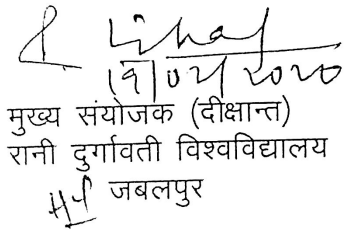 19/02/2020
मुख्य संयोजक (दीक्षान्त)
रानी दुर्गावती विश्वविद्यालय
जबलपुर